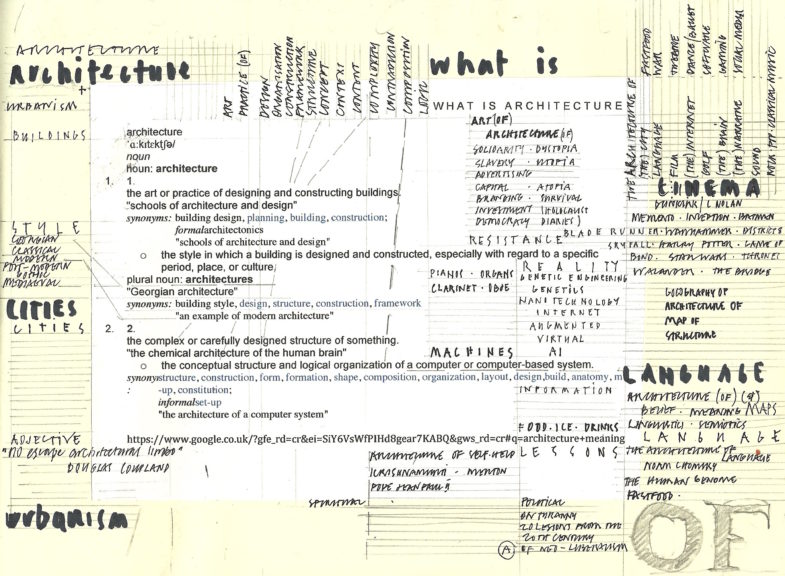 ARCHITECTURE
architecture
+
URBANISM
BUILDINGS
ART
PRACTICE (OF)
DESIGN
ORGANISATION
CONSTRUCTION
FRAMEWORK
STRUCTURE
CONCEPT
CONTEXT
CONTENT
COMPLEXITY
CONTRADICTION
COMPOSITION
LOGIC
what is
WHAT IS ARCHITECTURE
THE ARCHITECTURE OF
(THE) CITY
FASTFOOD
WAR
LANGUAGE
THEATRE
FILM
DANCE/BALLET
(THE) INTERNET
SOFTWARE
GOLF
GAMING
(THE) BRAIN
SOCIAL MEDIA
(THE) NARRATIVE
SOUND
ROCK·POP·CLASSICAL MUSIC
architecture
ˈɑːkɪtɛktʃə/
noun
noun: architecture
1. 1.
the art or practice of designing and constructing buildings.
"schools of architecture and design"
synonyms: building design, planning, building, construction;
formalarchitectonics
"schools of architecture and design"
o the style in which a building is designed and constructed, especially with regard to a specific
period, place, or culture.
plural noun: architectures
"Georgian architecture"
synonyms: building style, design, structure, construction, framework
"an example of modern architecture"
2. 2.
the complex or carefully designed structure of something.
"the chemical architecture of the human brain"
o the conceptual structure and logical organization of a computer or computer-based system.
synonymstructure, construction, form, formation, shape, composition, organization, layout, design,build, anatomy, m
: -up, constitution;
informalset-up
"the architecture of a computer system"
https://www.google.co.uk/?gfe_rd=cr&ei=SiY6VsWfPIHd8gear7KABQ&gws_rd=cr#q=architecture+meaning
ART (OF)
ARCHITECTURE (OF)
SOLIDARITY · DYSTOPIA
SLAVERY · UTOPIA
ADVERTISING
CAPITAL · ATOPIA
BRANDING · SURVIVAL
INVESTMENT (HOLOCAUST
DEMOCRACY DIARIES)
RESISTANCE
CINEMA
DUNKIRK / C NOLAN
MEMENTO · INCEPTION · BATMAN
BLADE RUNNER · WARHAMMER · DISTRICT 9
SKYFALL · HARRY POTTER · GAME OF
BOND · STAR WARS · THRONES
WALANDER · THE BRIDGE
REALITY
GENETIC ENGINEERING
GENETICS
NANOTECHNOLOGY
INTERNET
AUGMENTED
VIRTUAL
AI
PIANOS · ORGANS
CLARINET · OBOE
MACHINES
INFORMATION
GEOGRAPHY OF
ARCHITECTURE OF
MAP OF
STRUCTURE
STYLE
GEORGIAN
CLASSICAL
MODERN
POST-MODERN
GOTHIC
MEDIAEVAL
CITIES
CITIES
LANGUAGE
ARCHITECTURE (OF)
BELIEF · MEANING MAPS
LINGUISTICS · SEMIOTICS
LANGUAGE
THE ARCHITECTURE OF
LANGUAGE
NOAM CHOMSKY
THE HUMAN GENOME
FASTFOOD ·
FOOD·ICE·DRINKS
LESSONS
ADJECTIVE
"NO escape architectural limbo"
DOUGLAS COUPLAND
ARCHITECTURE OF SELF-HELP
KRISHNAMURTI · MERTON
POPE JEAN PAUL II
SPIRITUAL
POLITICAL
ON TYRANNY
20 LESSONS FROM THE
20TH CENTURY
(A) OF NEO-LIBERALISM
urbanism
OF